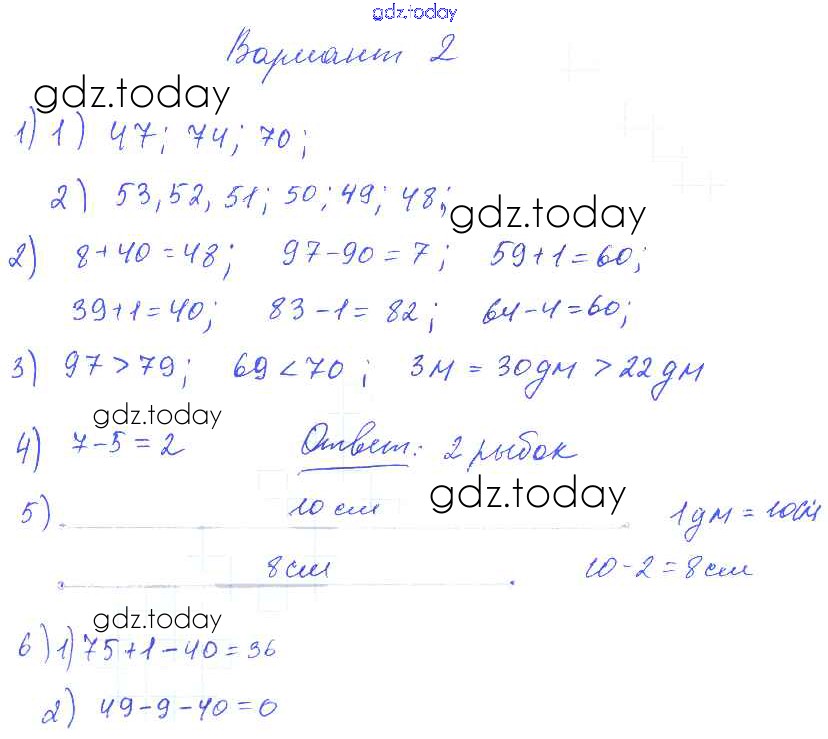 gdz.today
Вариант 2
gdz.today
1) 1) 47; 74; 70;
2) 53, 52, 51; 50; 49; 48;
gdz.today
2) 8+40=48; 97-90=7; 59+1=60;
39+1=40; 83-1=82; 64-4=60;
3) 97>79; 69<70; 3м = 30дм > 22дм
gdz.today
4) 7-5=2 Ответ: 2 рыбок
gdz.today
5) 10 см 1дм = 10см
8см 10-2=8см
gdz.today
6) 1) 75+1-40=36
2) 49-9-40=0